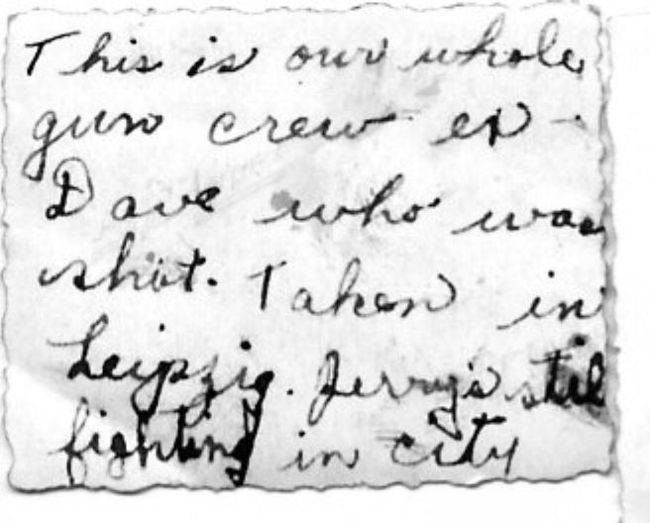 This is our whole
gun crew ex -
Dave who was
shot. Taken in
Leipzig. Jerry's still
fighting in city